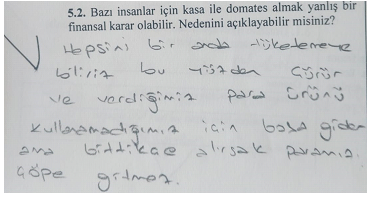 5.2. Bazı insanlar için kasa ile domates almak yanlış bir
finansal karar olabilir. Nedenini açıklayabilir misiniz?
Hepsini bir anda tüketemeye
biliriz bu yüzden Çürür
ve verdiğimiz para ürünü
kullanamadığımız için boşa gider
ama bittikçe alırsak paramız
Çöpe gitmez.